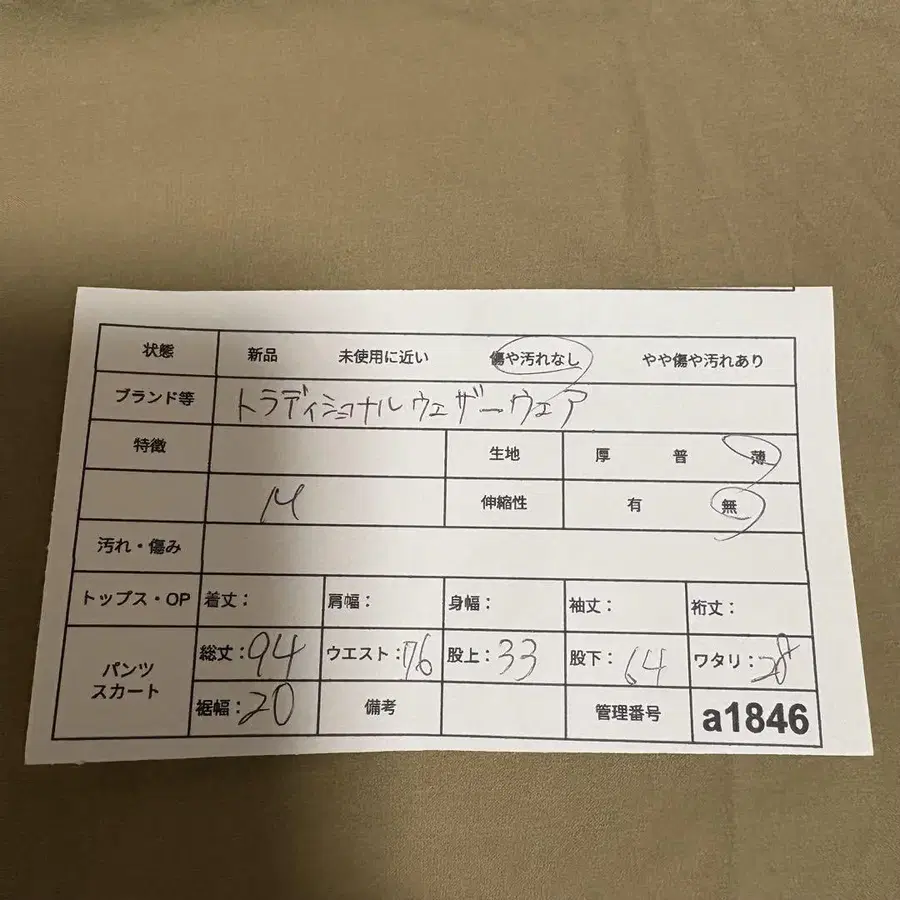 状態 新品 未使用に近い 傷や汚れなし やや傷や汚れあり
ブランド等 トラディショナルウェザーウェア
特徴 生地 厚 普 薄
M 伸縮性 有 無
汚れ・傷み
トップス・OP 着丈： 肩幅： 身幅： 袖丈： 裄丈：
パンツ スカート 総丈：94 ウエスト：76 股上：33 股下：64 ワタリ：28
裾幅：20 備考 管理番号 a1846